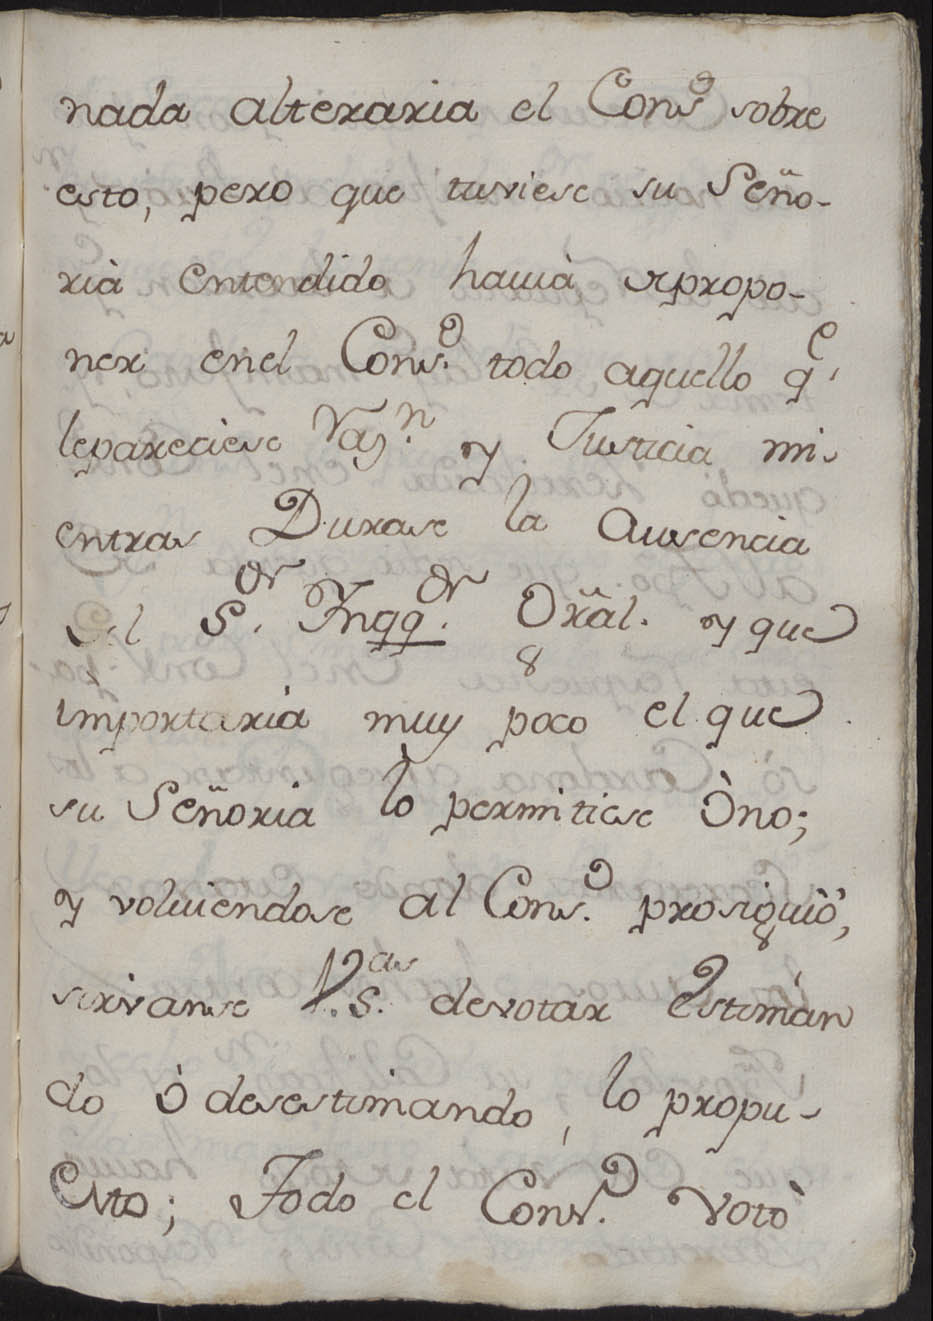 nada alteraria el Cons.º sobre
esto, pero que tuviese su Seño-
rià entendido hauià propo-
ner en el Cons.º todo aquello q.e
le pareciese Raz.n y Justicia mi-
entras Durase la Ausencia
del S.or Inqq.or Oral. y que
importaria muy poco el que
su Señoria lo permitiese Òno;
y volviendose al Cons.º prosiguiò,
sirvanse V.S.as de votar Estiman
do ò desestimando, lo propu-
Esto; Todo el Cons.º Votò